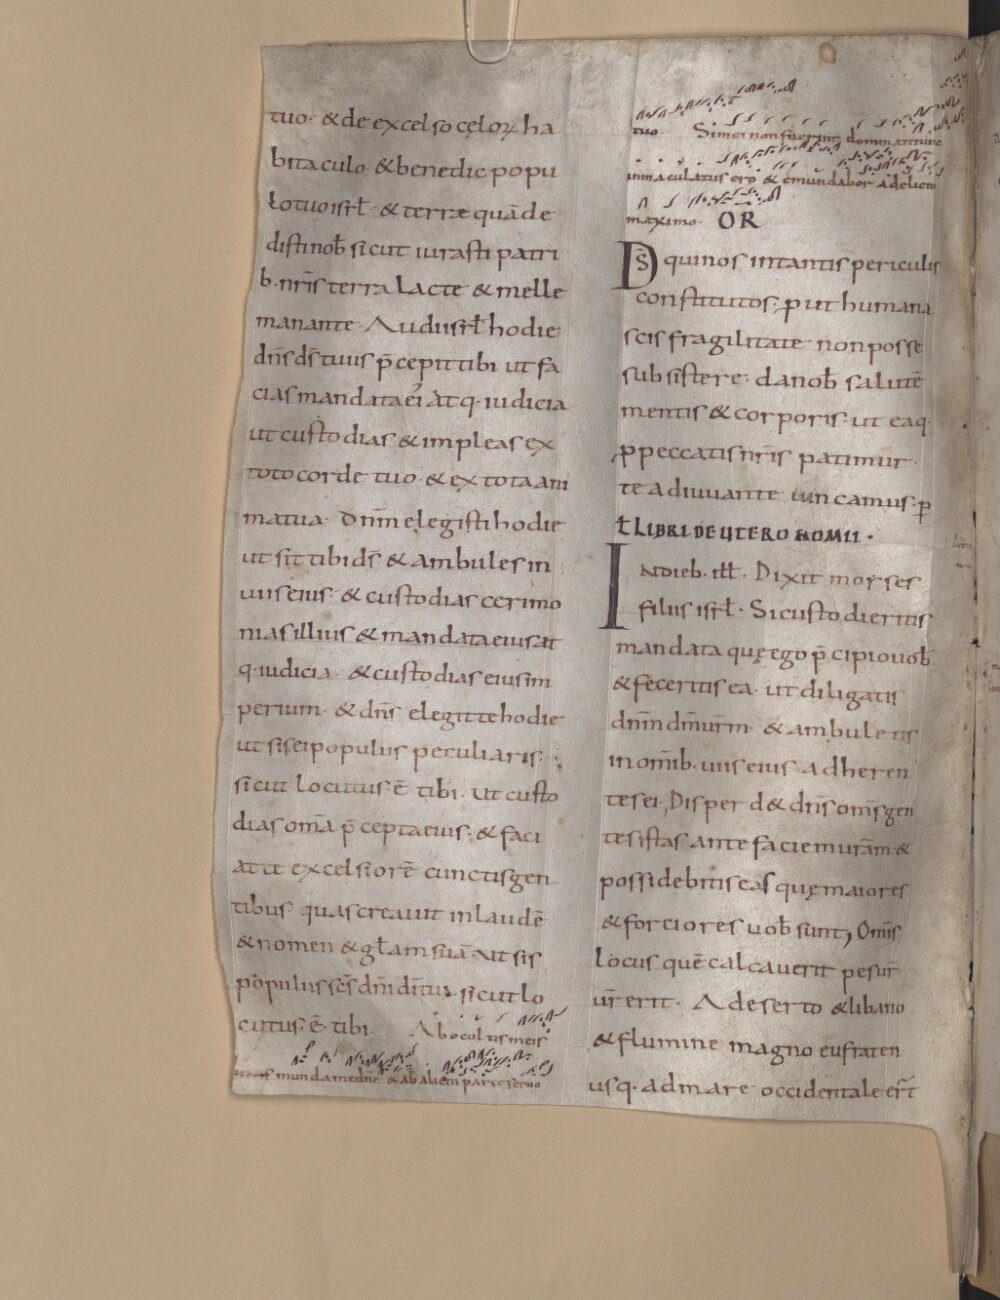 tuo· & de excelso cęloꝝ ha
bitaculo· & benedic popu
lo tuo isrł· & terræ quā de
disti nob̄ sicut iurasti patri
b· nr̄is terra lacte & melle
manante· Audi isrł hodie
dn̄s d̄s tuus p̄cepit tibi ut fa
cias mandata ei᾽ Atq· iudicia
ut custodias & impleas ex
toto corde tuo· & ex tota ani
ma tua· Dn̄m elegisti hodie
ut sit tibi d̄s & ambules in
uiis eius· & custodias cerimo
nias illius & mandata eius at
q· iudicia· & custodias eius im
perium· & dn̄s elegit te hodie
ut sis ei populus peculiaris·
sicut locutus· ē tibi· Ut custo
dias om̄a p̄cepta eius· & faci
at te excelsiorē cunctis gen
tibus· quas creauit in laudē
& nomen & gł̄am suā· Ut sis
populus sc̄s dn̄i dī tui· sicut lo
cutus· ē· tibi· Ab ocultis meis
munda me dn̄e & ab alienis parce seruo
tuo· Si mei non fuerint dominati tunc
inmaculatus ero & emundabor a delicto
maximo· OR
D̄s qui nos in tantis periculis
constitutos· ꝓ ut humana
scis fragilitate non posse
subsistere· da nob̄ salutē
mentis & corporis· ut ea q·
ꝓ peccatis nr̄is patimur·
te adiuuante uincamus· ꝑ
ł LIBRI DEUTERONOMII·
IN dieb· ill̄· Dixit moyses
filiis isrł· Si custodieritis
mandata quę ego p̄cipio uob̄
& feceritis ea· ut diligatis
dn̄m dm̄ ur̄m· & ambuletis
in om̄ib· uiis eius adheren
tes ei, Disperd& dn̄s om̄s gen
tes istas ante faciem ur̄am &
possidebitis eas quę maiores
& forciores uob̄ sunt, Om̄s
locus quē calcauerit pes ur̄
ur̄ erit· A deserto & libano
& flumine magno eufraten
usq· ad mare occidentale er̄t